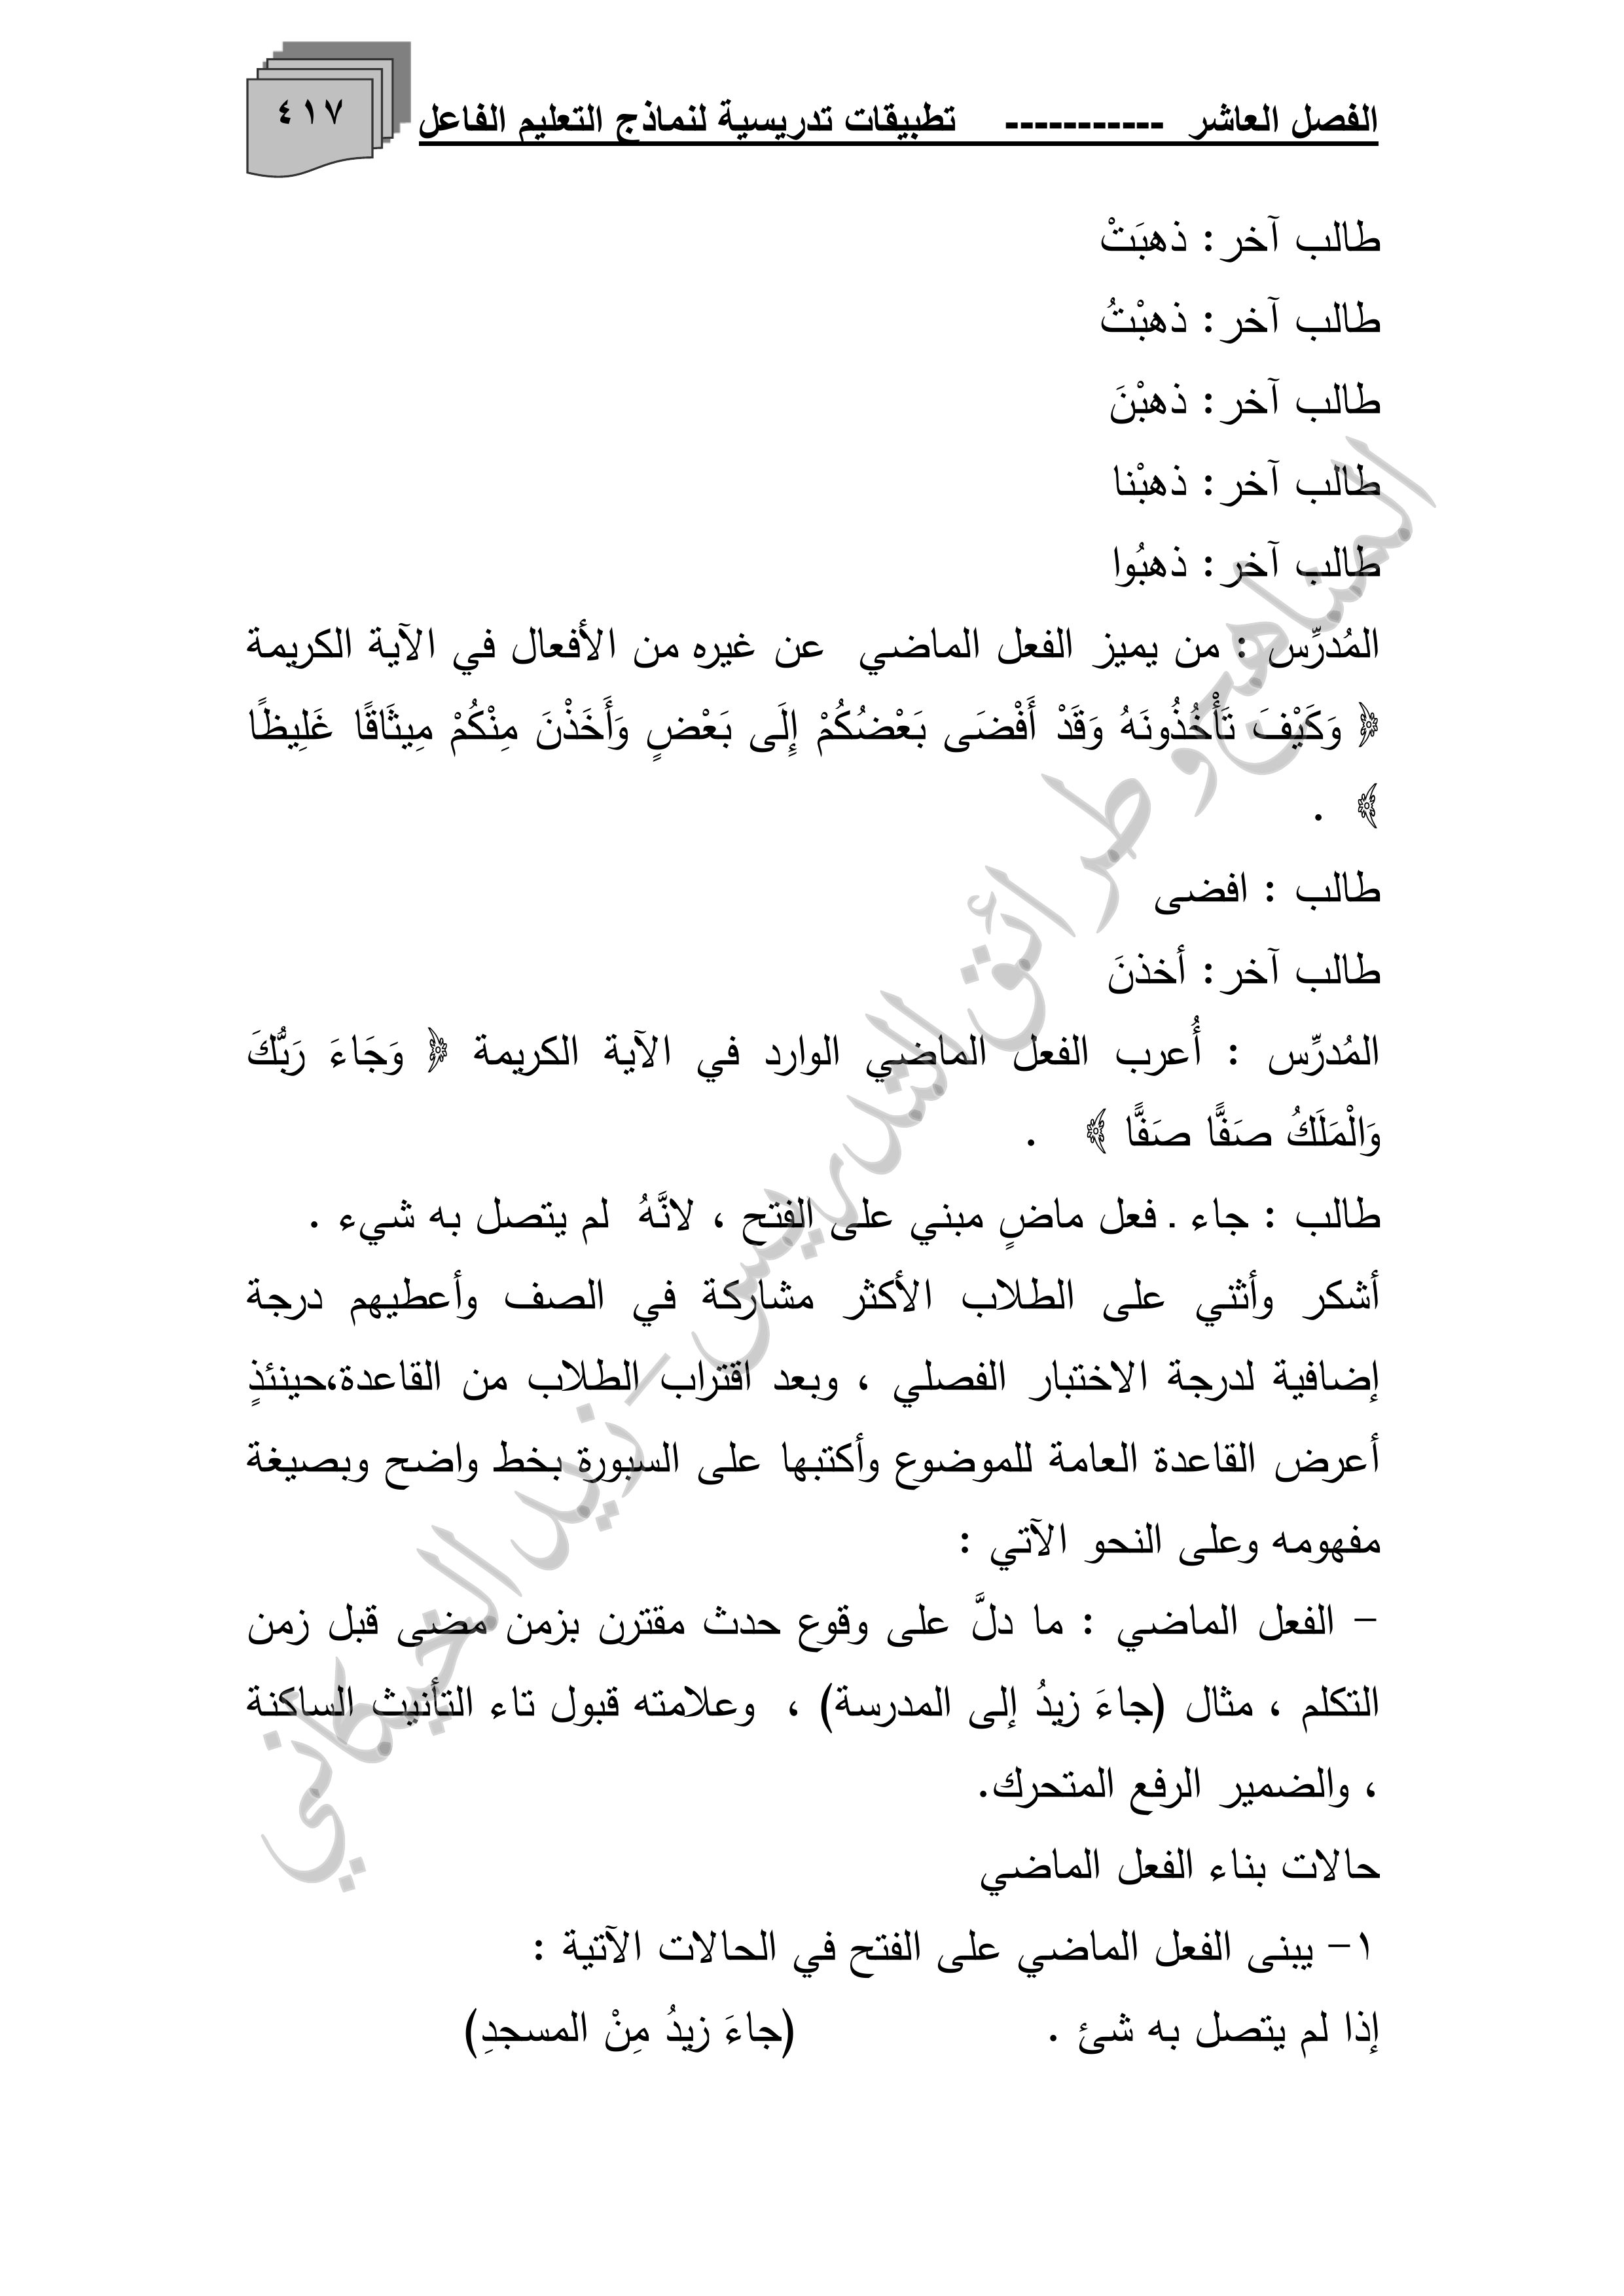 الفصل العاشر ----------- تطبيقات تدريسية لنماذج التعليم الفاعل
٤١٧
طالب آخر: ذهبَتْ
طالب آخر: ذهبْتُ
طالب آخر: ذهبْنَ
طالب آخر: ذهبْنا
طالب آخر: ذهبُوا
المُدرِّس : من يميز الفعل الماضي عن غيره من الأفعال في الآية الكريمة
﴿ وَكَيْفَ تَأْخُذُونَهُ وَقَدْ أَفْضَى بَعْضُكُمْ إِلَى بَعْضٍ وَأَخَذْنَ مِنْكُمْ مِيثَاقًا غَلِيظًا
﴾ .
طالب : افضى
طالب آخر: أخذنَ
المُدرِّس : أُعرب الفعل الماضي الوارد في الآية الكريمة ﴿ وَجَاءَ رَبُّكَ
وَالْمَلَكُ صَفًّا صَفًّا ﴾ .
طالب : جاء . فعل ماضٍ مبني على الفتح ، لانَّهُ لم يتصل به شيء .
أشكر وأثني على الطلاب الأكثر مشاركة في الصف وأعطيهم درجة
إضافية لدرجة الاختبار الفصلي ، وبعد اقتراب الطلاب من القاعدة،حينئذٍ
أعرض القاعدة العامة للموضوع وأكتبها على السبورة بخط واضح وبصيغة
مفهومه وعلى النحو الآتي :
- الفعل الماضي : ما دلَّ على وقوع حدث مقترن بزمن مضى قبل زمن
التكلم ، مثال (جاءَ زيدُ إلى المدرسة) ، وعلامته قبول تاء التأنيث الساكنة
، والضمير الرفع المتحرك.
حالات بناء الفعل الماضي
١- يبنى الفعل الماضي على الفتح في الحالات الآتية :
إذا لم يتصل به شئ . (جاءَ زيدُ مِنْ المسجدِ)
المناهج وطرائق التدريس - زيد الخيكاني